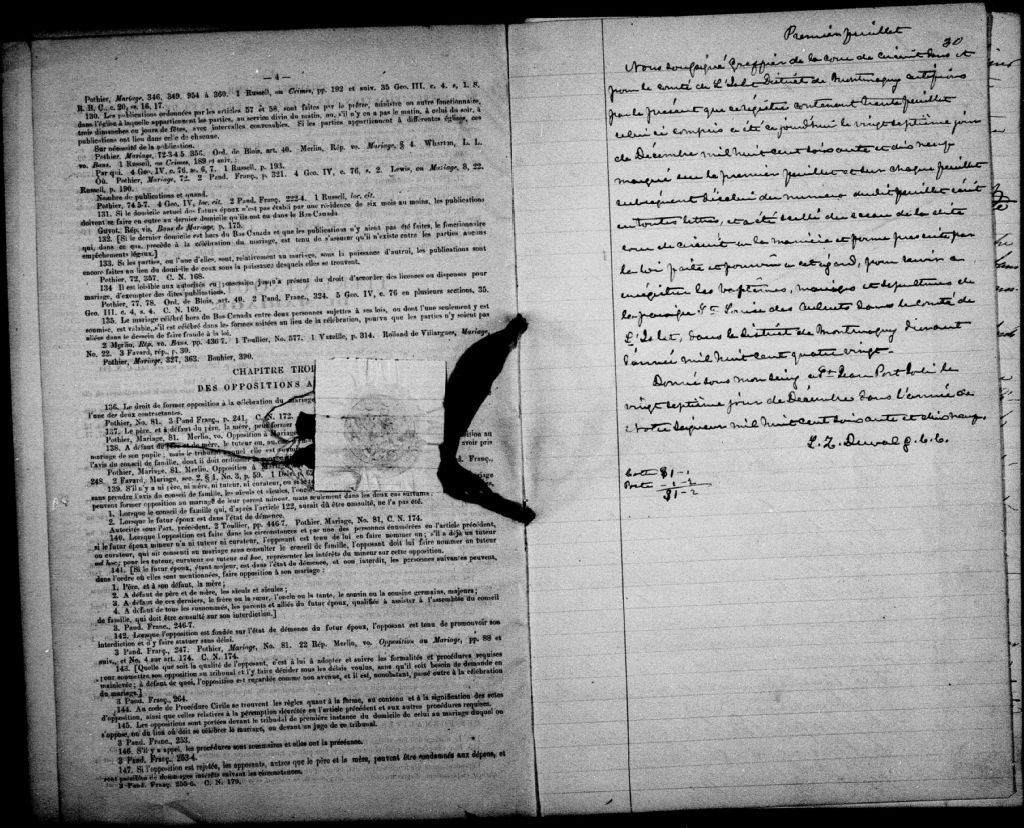 — 4 —
Pothier, Mariage, 346, 349, 954 à 360. 1 Russell, on Crimes, pp. 192 et suiv. 35 Geo. III, c. 4, s. 1. S.
R. B. C., c. 20, ss. 16, 17.
130. Les publications ordonnées par les articles 57 et 58, sont faites par le prêtre, ministre ou autre fonctionnaire,
dans l'église à laquelle appartiennent les parties, au service divin du matin, ou, s'il n'y en a pas le matin, à celui du soir, à
trois dimanches ou jours de fêtes, avec intervalles convenables. Si les parties appartiennent à différentes églises, ces
publications ont lieu dans celle de chacune.
Sur nécessité de la publication.
Pothier, Mariage, 72-3-4-5 356. Ord. de Blois, art. 40. Merlin, Rép. vo. Mariage, § 4. Wharton, L. L.
vo. Bans. 1 Russell, on Crimes, 189 et suiv.
Par qui. 4 Geo. IV, c. 76, ss. 6, 7. 1 Russell, p. 193.
Où. Pothier, Mariage, 72. 2 Pand. Franç., p. 321. 4 Geo. IV, c. 76, s. 2. Lewis, on Mariage, 8, 22.
Russell, p. 190.
Nombre de publications et quand.
Pothier, 74-5-7. 4 Geo. IV, loc. cit. 2 Pand. Franç. 222-4. 1 Russell, loc. cit.
131. Si le domicile actuel des futurs époux n'est pas établi par une résidence de six mois au moins, les publications
doivent se faire en outre au dernier domicile qu'ils ont eu dans le Bas-Canada
Guyot, Rép. vis. Bans de Mariage, p. 175.
132. [Si le dernier domicile est hors du Bas-Canada et que les publications n'y aient pas été faites, le fonctionnaire
qui, dans ce cas, procède à la célébration du mariage, est tenu de s'assurer qu'il n'existe entre les parties aucuns
empêchements légaux.]
133. Si les parties, ou l'une d'elles, sont, relativement au mariage, sous la puissance d'autrui, les publications sont
encore faites au lieu du domicile de ceux sous la puissance desquels elles se trouvent.
Pothier, 72, 357. C. N. 168.
134 Il est loisible aux autorités en possession jusqu'à présent du droit d'accorder des licences ou dispenses pour
mariage, d'exempter des dites publications.
Pothier, 77, 78. Ord. de Blois, art. 40. 2 Pand. Franc., 324. 5 Geo. IV, c. 76 en plusieurs sections, 35.
Geo. III. c. 4, s. 4. C. N. 169.
135. Le mariage célébré hors du Bas-Canada entre deux personnes sujettes à ses lois, ou dont l'une seulement y est
soumise, est valable, s'il est célébré dans les formes usitées au lieu de la célébration, pourvu que les parties n'y soient pas
allées dans le dessein de faire fraude à la loi.
2 Merlin, Rép. vo. Bans, pp. 436-7. 1 Toullier, No. 577. 1 Vazeille, p. 314. Rolland de Villargues, Mariage,
No. 22. 3 Favard, rép., p. 39.
Pothier, Mariage, 327, 363. Bouhier, 390.
CHAPITRE TROI
DES OPPOSITIONS A
136. Le droit de former opposition à la célébration du mariage
l'une des deux contractantes.
Pothier, No. 81. 3 Pand Franç., p. 241. C. N. 172.
137. Le père, et à défaut du père, la mère, peut former
Pothier, Mariage, 81. Merlin, vo. Opposition à Mariage
138. A défaut de père et de mère, le tuteur ou, au
mariage de son pupille; mais le tribunal
l'avis du conseil de famille, dont il doit
Pothier, Mariage, 81. Merlin, Opposition à
248. 2 Favard, Mariage, sec. 2, § 1, No. 3, p. 59.
139. S'il n'y a ni père, ni mère, ni tuteur, ni curateur, ou si le
sans prendre l'avis du conseil de famille, les aïeuls et aïeules,
peuvent former opposition au mariage de leur parent mineur, mais seulement dans les deux cas suivants:
1. Lorsque le conseil de famille qui, d'après l'article 122, aurait dû être consulté, ne l'a pas été.
2. Lorsque le futur époux est dans l'état de démence.
Autorités sous l'art. précédent. 2 Toullier, pp. 446-7. Pothier, Mariage, No. 81, C. N. 174.
140. Lorsque l'opposition est faite dans les circonstances et par une des personnes énumérées en l'article précédent,
si le futur époux mineur n'a ni tuteur ni curateur, l'opposant est tenu de lui en faire nommer un; s'il a déjà un tuteur
ou curateur, qui ait consenti au mariage sans consulter le conseil de famille, l'opposant doit lui faire nommer un tuteur
ad hoc; pour les tuteur, curateur ou tuteur ad hoc, représenter les intérêts du mineur sur cette opposition.
141. [Si le futur époux, étant majeur, est dans l'état de démence, et non interdit, les personnes suivantes peuvent,
dans l'ordre où elles sont mentionnées, faire opposition à son mariage:
1. Père, et à son défaut, la mère;
2. A défaut de père et de mère, les aïeuls et aïeules;
3. A défaut de ces derniers, le frère ou la sœur, l'oncle ou la tante, le cousin ou la cousine germains, majeurs;
4. A défaut de tous les susnommés, les parents et alliés du futur époux, qualifiés à assister à l'assemblée du conseil
de famille, qui doit être consulté sur son interdiction.]
3. Pand. Franc. 246-7.
142. Lorsque l'opposition est fondée sur l'état de démence du futur époux, l'opposant est tenu de promouvoir son
interdiction et d'y faire statuer sans délai.
3 Pand. Franç., 247. Pothier, Mariage, No. 81. 22 Rép. Merlin, vo. Opposition au Mariage, pp. 88 et
suiv., et No. 4 sur art. 174. C. N. 174.
143. [Quelle que soit la qualité de l'opposant, c'est à lui à adopter et suivre les formalités et procédures requises
pour soumettre son opposition au tribunal et l'y faire décider sous les délais voulus, sans qu'il soit besoin de demande en
mainlevée; à défaut de quoi, l'opposition est regardée comme non avenue, et il est, nonobstant, passé outre à la célébration
du mariage.]
3 Pand. Franç., 264.
144. Au code de Procédure Civile se trouvent les règles quant à la forme, au contenu et à la signification des actes
d'opposition, ainsi que celles relatives à la péremption décrétée en l'article précédent et aux autres procédures requises.
145. Les oppositions sont portées devant le tribunal de première instance du domicile de celui au mariage duquel on
s'oppose, ou du lieu où doit se célébrer le mariage, ou devant un juge de ce tribunal.
3 Pand. Franc., 253.
146. S'il y a appel, les procédures sont sommaires et elles ont la préséance.
3 Pand. Franç., 253-4.
147. Si l'opposition est rejetée, les opposants, autres que le père et la mère, peuvent être condamnés aux dépens, et
sont passibles de dommages intérêts suivant les circonstances.
3 Pand. Franç. 255-6. C. N. 179.
Premier feuillet
30
Nous soussigné Greffier de la cour de Circuit dans et
pour le comté de L'Islet District de Montmagny certifions
par le présent que ce régistre contenant trente feuillet
celui ci compris a été ce jourd'hui le vingt septième jour
de Décembre mil huit cent soixante et dix neuf
marqué sur le premier feuillet et sur chaque feuillet
subséquent d'icelui du numero du dit feuillet écrit
en toutes lettres, et a été scellé du sceau de la dite
cour de circuit en la manière et forme prescrite par
la loi faite et pourvu a cet égard, pour servir a
enrégistrer les baptêmes, mariages et sépultures de
la paroisse St. Louise des Aulnets dans le comté de
L'Islet, dans le district de Montmagny durant
l'année mil huit cent quatre vingt -
Donné sous mon seing a St. Jean Port Joli le
vingt septième jour de Décembre dans l'année de
Notre Seigneur mil huit cent soixante et dix neuf.
L. Z. Duval g. c. c.
$1-1
-1-2
$1-2